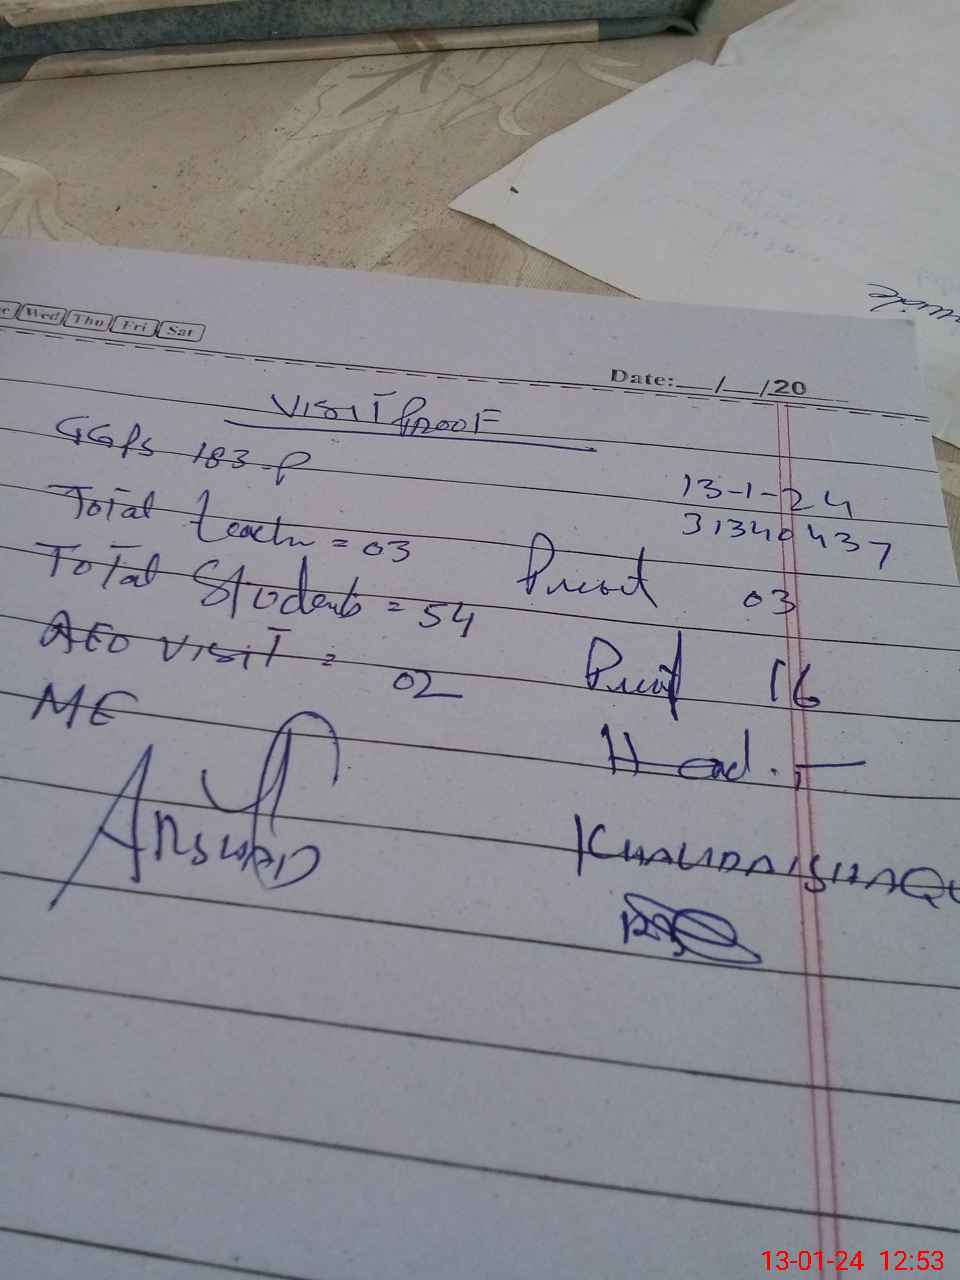 Wed Thu Fri Sat
Date:__/__/20
VISIT PROOF
GGPS 183-P
13-1-24
31340437
Total teach = 03 Present 03
Total Students = 54 Present 16
AEO VISIT = 02
ME
Head.
ARSHAD
KHALIDA ISHAQ
13-01-24 12:53